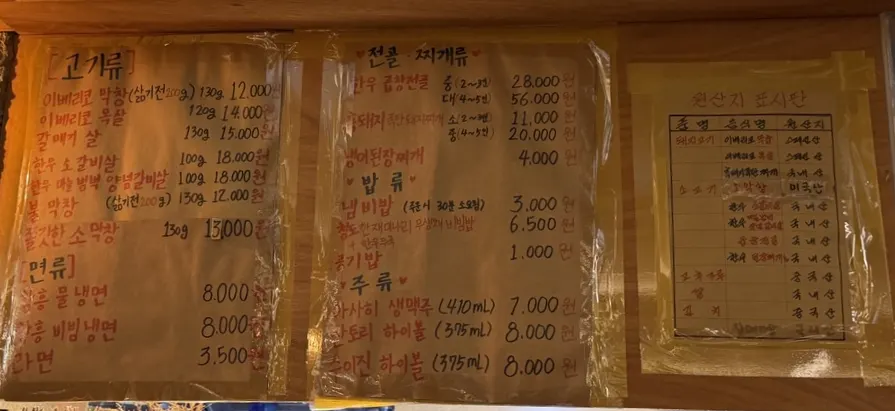 [고기류]
이베리코 막창(삶기전200g) 130g 12.000원
이베리코 목살 120g 14.000원
갈매기 살 130g 15.000원
한우 소갈비살 100g 18.000원
한우 마늘 범벅 양념갈비살 100g 18.000원
불 막창 (삶기전200g) 130g 12.000원
쫄깃한 소막창 130g 13,000원
[면류]
함흥 물냉면 8.000원
함흥 비빔냉면 8.000원
라면 3.500원
♥전골·찌개류♥
한우 곱창전골 중(2~3인) 28.000원
대(4~5인) 56.000원
소(2~3인) 11.000원
중(4~5인) 20.000원
냉이된장찌개 4.000원
♥밥류♥
냄비밥 (주문시 30분 소요됨) 3.000원
6.500원
공기밥 1.000원
♥주류♥
아사히 생맥주 (470mL) 7.000원
산토리 하이볼 (375mL) 8.000원
하이볼 (375mL) 8.000원
원산지 표시판
품명 음식명 원산지
돼지고기 이베리코 목살 스페인산
이베리코 스페인산
소고기 소막창 미국산
국내산
국내산
국내산
국내산
중국산
쌀 국내산
김치 중국산